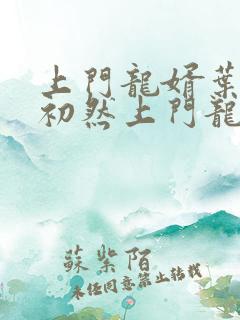 上門龍婿葉
初然上門龍
蘇紫陌
未经同意禁止转载